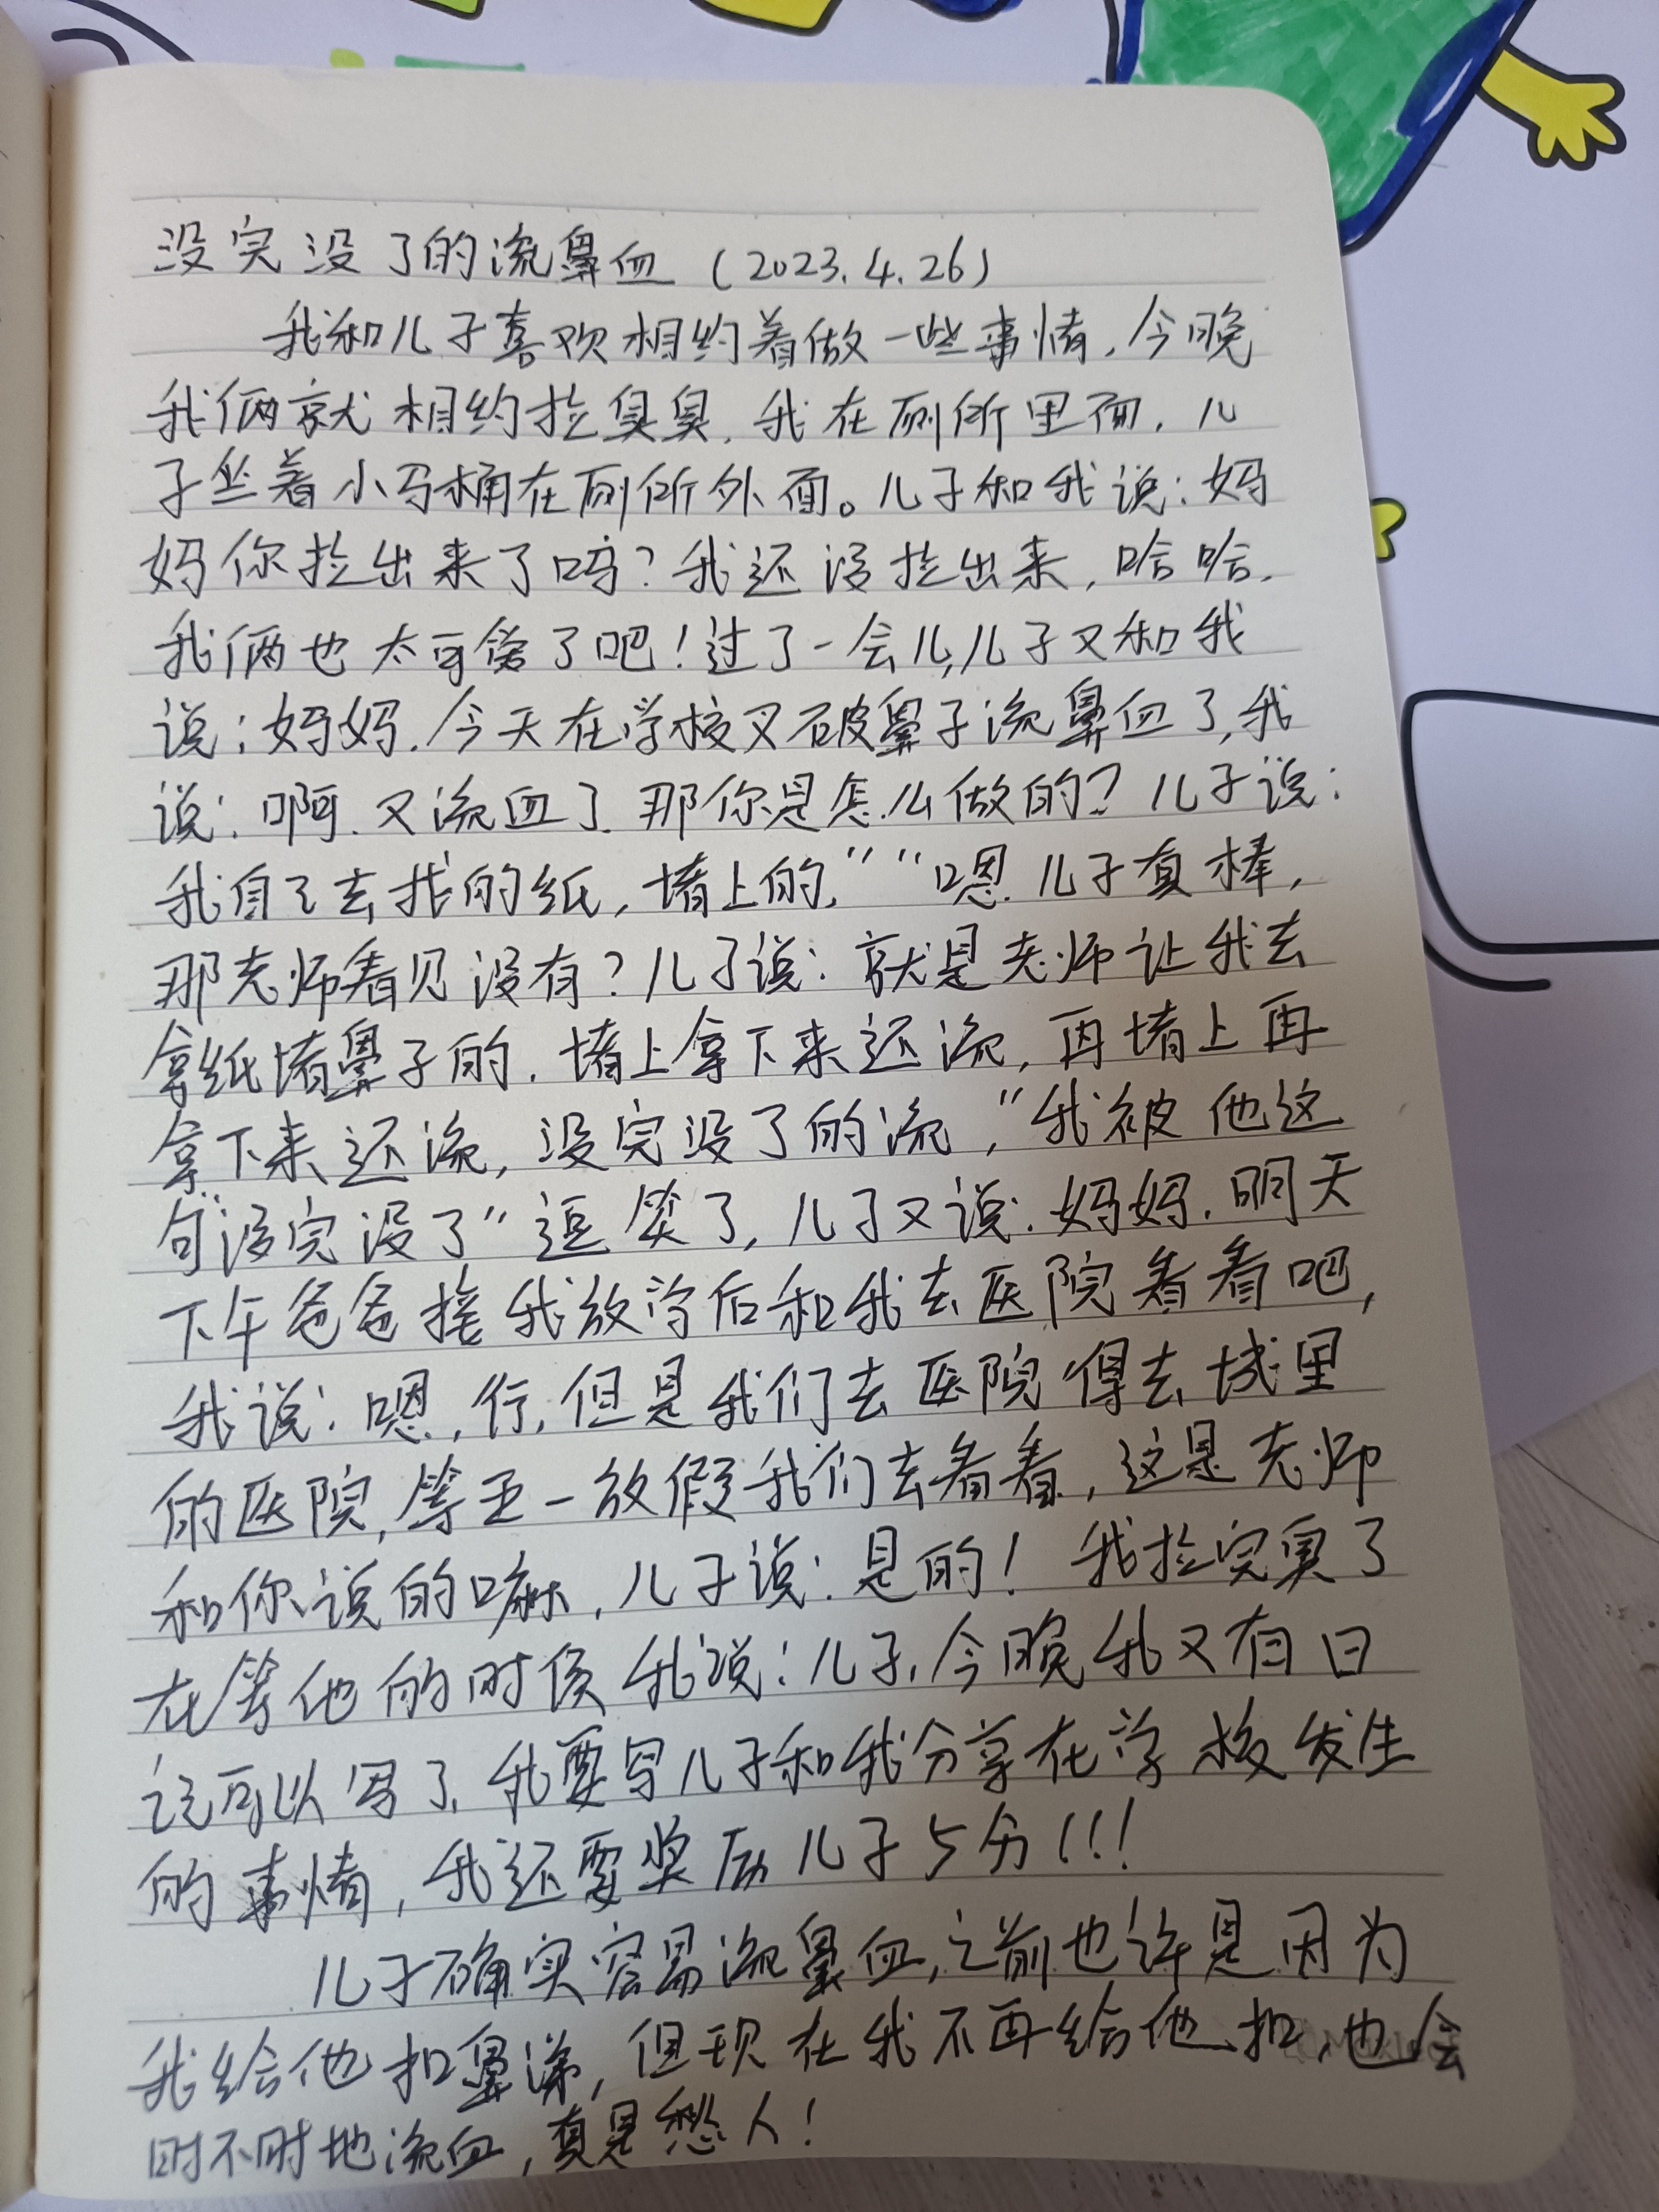 没完没了的流鼻血(2023.4.26)
我和儿子喜欢相约着做一些事情,今晚
我俩就相约拉臭臭,我在厕所里面,儿
子坐着小马桶在厕所外面。儿子和我说:妈
妈你拉出来了吗?我还没拉出来,哈哈,
我俩也太可爱了吧!过了一会儿,儿子又和我
说:妈妈,今天在学校又破鼻子流鼻血了,我
说:啊,又流血了,那你是怎么做的?儿子说:
我自己去找的纸,堵上的,”“嗯,儿子真棒,
那老师看见没有?儿子说:就是老师让我去
拿纸堵鼻子的,堵上拿下来还流,再堵上再
拿下来还流,没完没了的流,”我被他这
句“没完没了”逗笑了,儿子又说:妈妈,明天
下午爸爸接我放学后和我去医院看看吧,
我说:嗯,行,但是我们去医院得去城里
的医院,等五一放假我们去看看,这是老师
和你说的嘛,儿子说:是的!我拉完臭了
在等他的时侯我说:儿子,今晚我又有日
记可以写了,我要写儿子和我分享在学校发生
的事情,我还要奖励儿子5分!!!
儿子确实容易流鼻血,之前也许是因为
我给他扣鼻涕,但现在我不再给他扣,也会
时不时地流血,真是愁人!